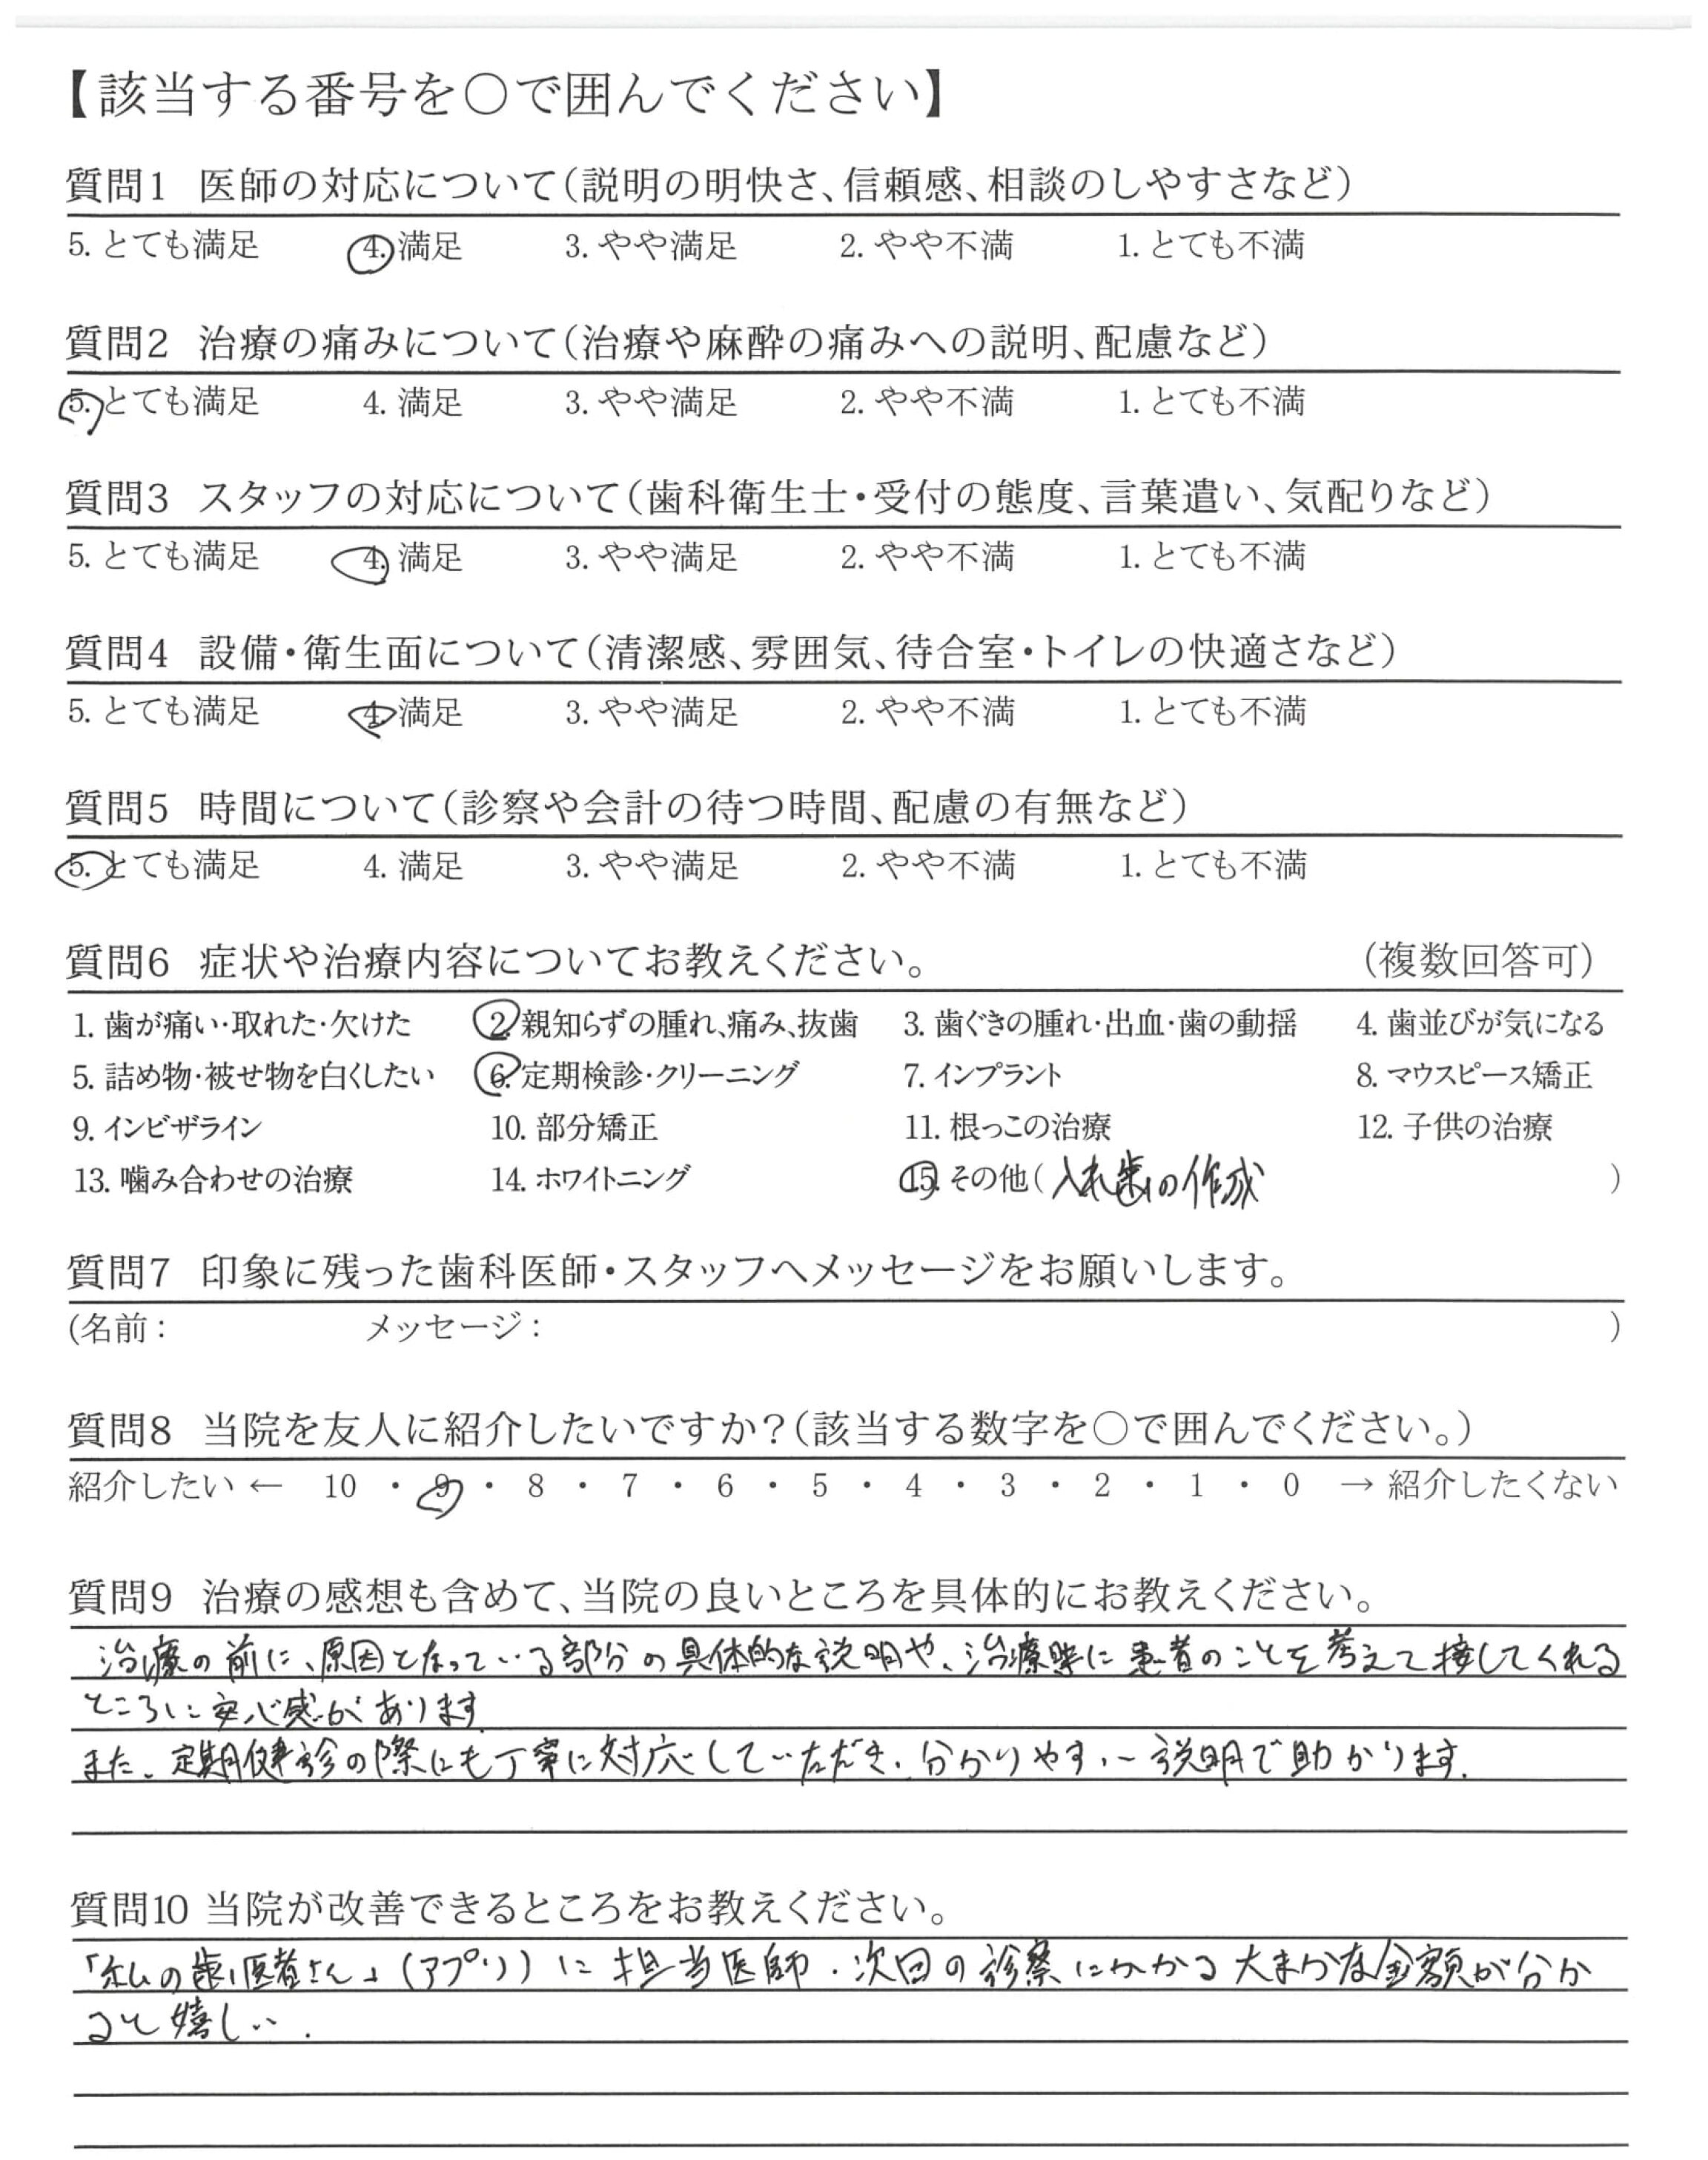 【該当する番号を〇で囲んでください】
質問1 医師の対応について(説明の明快さ、信頼感、相談のしやすさなど)
5. とても満足 4. 満足 3. やや満足 2. やや不満 1. とても不満
質問2 治療の痛みについて(治療や麻酔の痛みへの説明、配慮など)
5. とても満足 4. 満足 3. やや満足 2. やや不満 1. とても不満
質問3 スタッフの対応について(歯科衛生士・受付の態度、言葉遣い、気配りなど)
5. とても満足 4. 満足 3. やや満足 2. やや不満 1. とても不満
質問4 設備・衛生面について(清潔感、雰囲気、待合室・トイレの快適さなど)
5. とても満足 4. 満足 3. やや満足 2. やや不満 1. とても不満
質問5 時間について(診察や会計の待つ時間、配慮の有無など)
5. とても満足 4. 満足 3. やや満足 2. やや不満 1. とても不満
質問6 症状や治療内容についてお教えください。 (複数回答可)
1. 歯が痛い・取れた・欠けた 2. 親知らずの腫れ、痛み、抜歯 3. 歯ぐきの腫れ・出血・歯の動揺 4. 歯並びが気になる
5. 詰め物・被せ物を白くしたい 6. 定期検診・クリーニング 7. インプラント 8. マウスピース矯正
9. インビザライン 10. 部分矯正 11. 根っこの治療 12. 子供の治療
13. 噛み合わせの治療 14. ホワイトニング 15. その他(入れ歯の作成)
質問7 印象に残った歯科医師・スタッフへメッセージをお願いします。
(名前: メッセージ: )
質問8 当院を友人に紹介したいですか?(該当する数字を〇で囲んでください。)
紹介したい ← 10 ・ 9 ・ 8 ・ 7 ・ 6 ・ 5 ・ 4 ・ 3 ・ 2 ・ 1 ・ 0 → 紹介したくない
質問9 治療の感想も含めて、当院の良いところを具体的にお教えください。
治療の前に、原因となっている部分の具体的な説明や、治療時に患者のことを考えて接してくれる
ところに安心感があります。
また、定期健診の際にも丁寧に対応していただき、分かりやすい説明で助かります。
質問10 当院が改善できるところをお教えください。
「私の歯医者さん」(アプリ)に担当医師・次回の診察にかかる大まかな金額が分か
ると嬉しい.